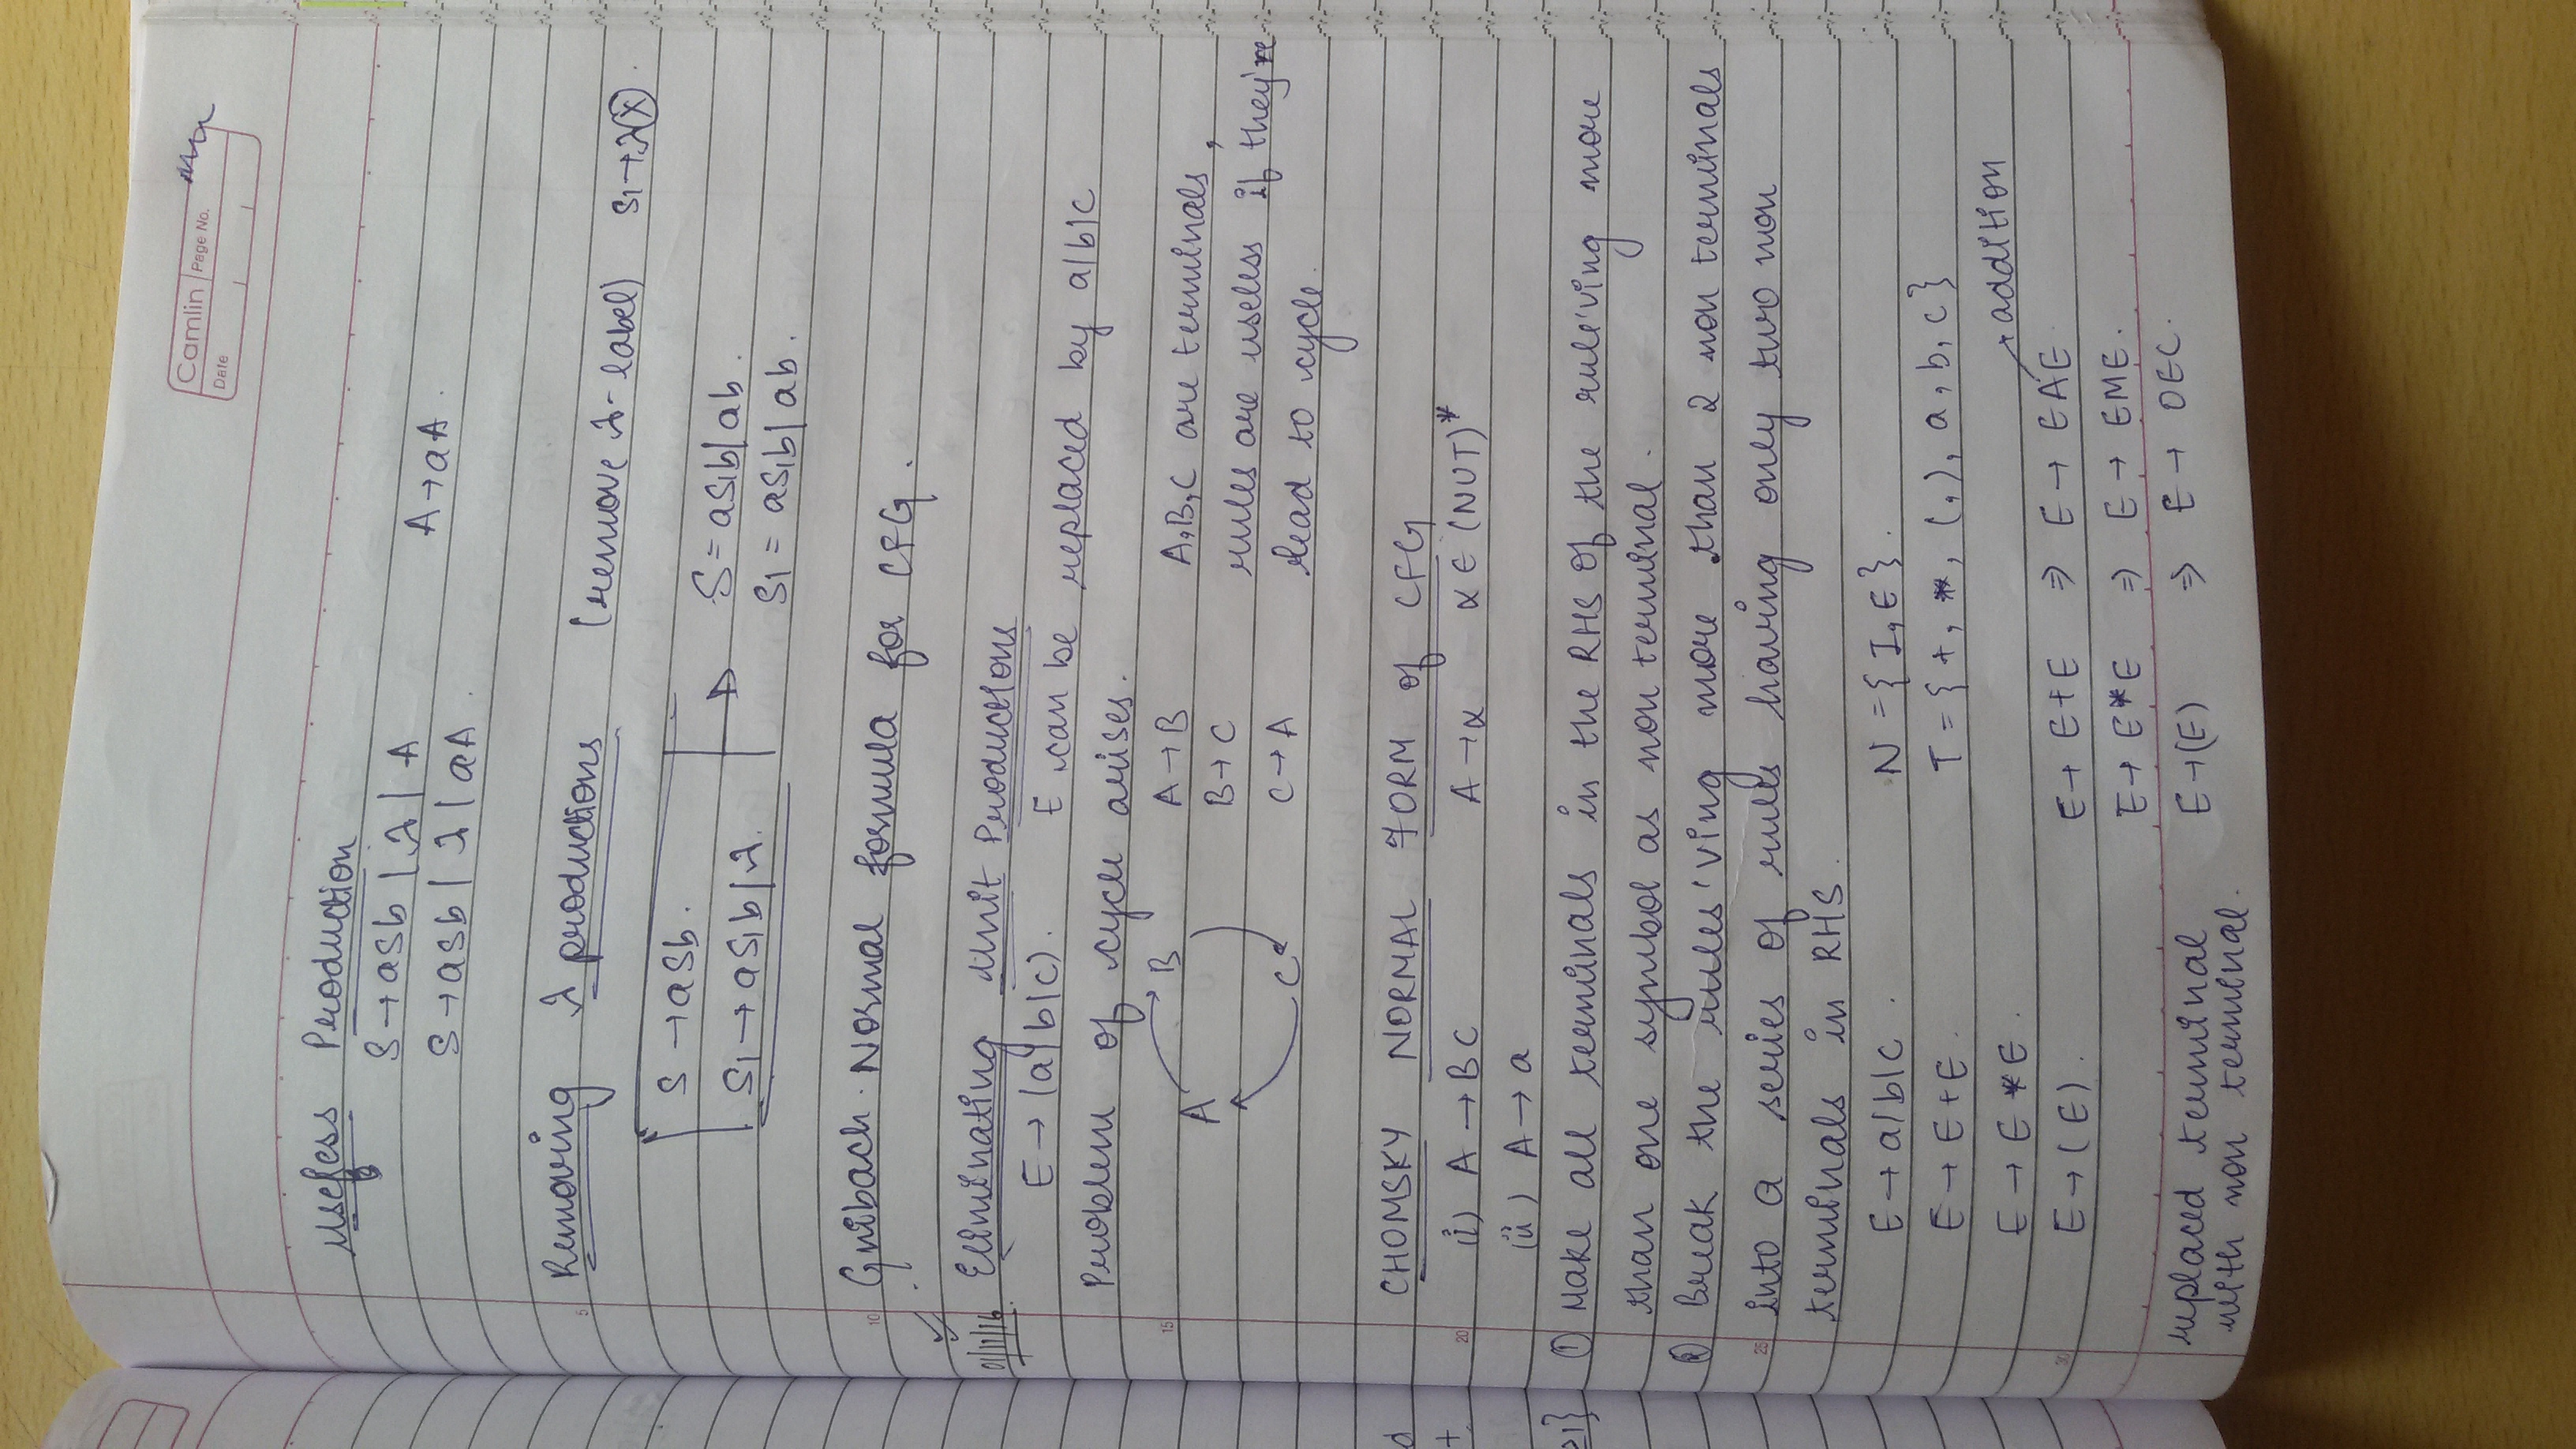 Camlin Page No.
Date
Useless Production
S → aSb | λ | A A → aA.
S → aSb | λ | aA.
5 Removing λ productions (remove λ-label) S1 → λ(X).
S → aSb.
S1 → aS1b | λ. S = aS1b | ab.
S1 = aS1b | ab.
10 Gnibach Normal formula for CFG.
01/11/16 Eliminating Unit Productions
E → (a|b|c). E can be replaced by a|b|c
Problem of cycle arises.
15 A B A → B A,B,C are terminals,
B → C rules are useless if they're
C C → A lead to cycle.
CHOMSKY NORMAL FORM of CFG
20 (i) A → BC A → α α ∈ (NUT)*
(ii) A → a
≥1} ① Make all terminals in the RHS of the rule 'ving more
than one symbol as non terminal.
② Break the rules 'ving more than 2 non terminals
25 into a series of rules having only two non
terminals in RHS.
E → a|b|c. N = {I, E}.
E → E+E. T = {+, *, (,), a, b, c}
E → E*E. addition
30 E → (E). E → E+E ⇒ E → EAE
E → E*E ⇒ E → EME.
replaced terminal E → (E) ⇒ E → OEC.
with non terminal.
d
+